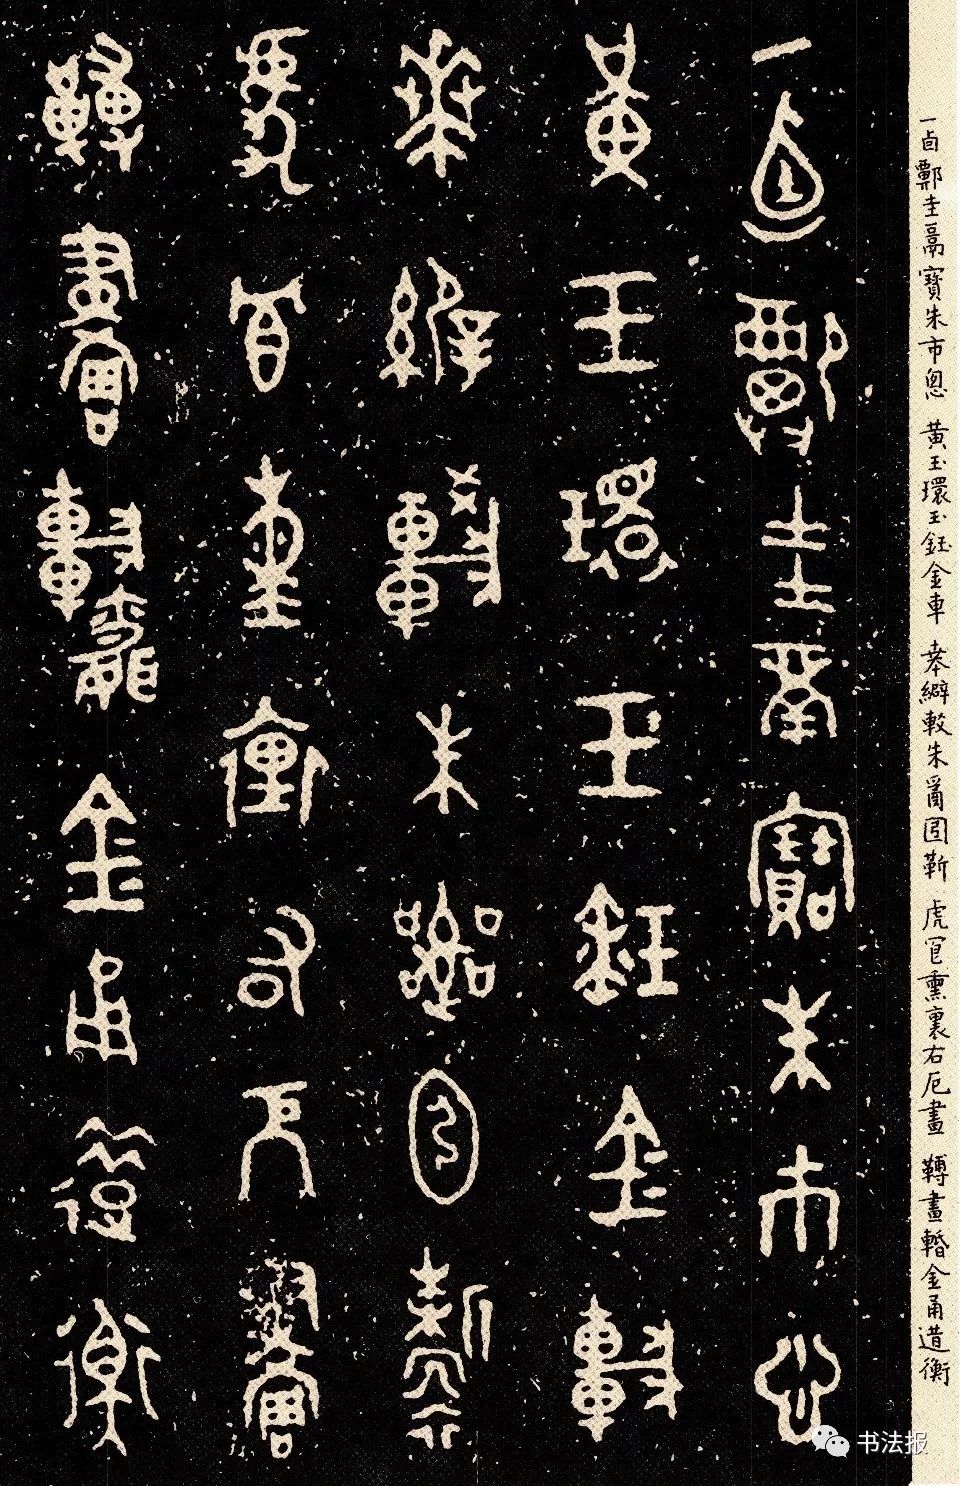 一卣鄭圭鬲寶朱市悤
黃玉環玉鈺金車
𠦪縪較朱𤔲䡇靳
虎冟熏裏右厄畫
轉畫䡝金甬道衡
书法报